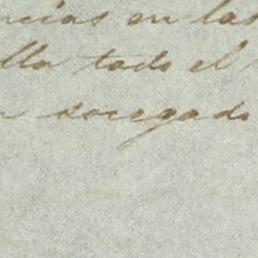 ncias en las
lla todo el
n socegado